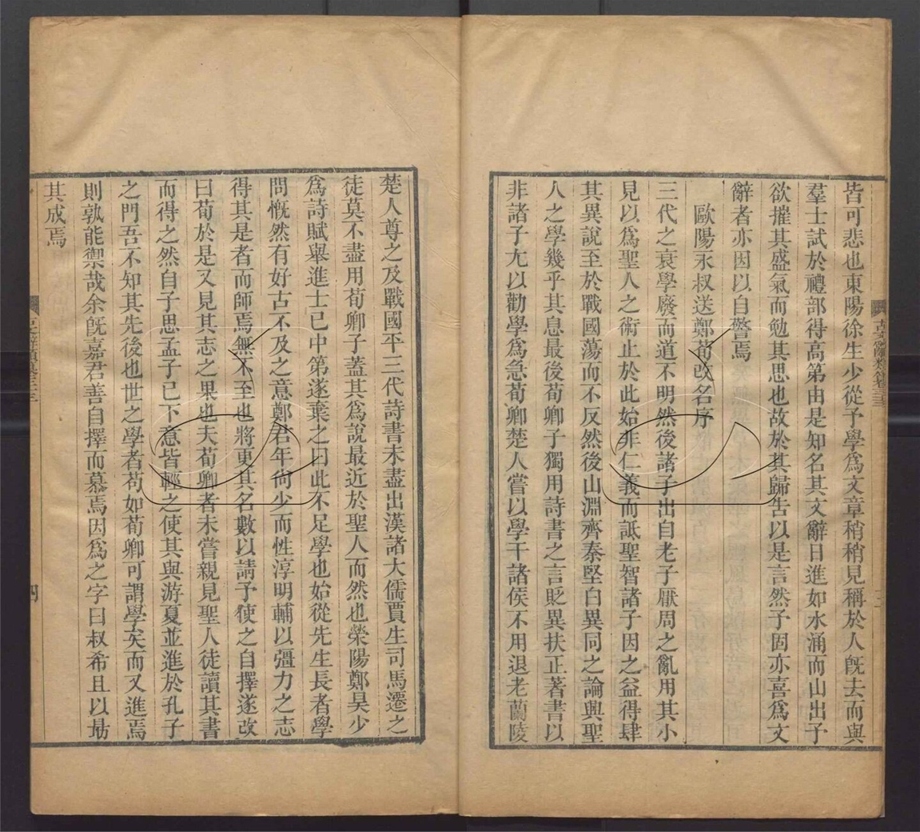 皆可悲也東陽徐生少從予學爲文章稍稍見稱於人旣去而與
羣士試於禮部得高第由是知名其文辭日進如水涌而山出予
欲摧其盛氣而勉其思也故於其歸告以是言然予固亦喜爲文
辭者亦因以自警焉
歐陽永叔送鄭荀改名序
三代之衰學廢而道不明然後諸子出自老子厭周之亂用其小
見以爲聖人之術止於此始非仁義而詆聖智諸子因之益得肆
其異說至於戰國蕩而不反然後山淵齊秦堅白異同之論興聖
人之學幾乎其息最後荀卿子獨用詩書之言貶異扶正著書以
非諸子尢以勸學爲急荀卿楚人嘗以學干諸侯不用退老蘭陵
楚人尊之及戰國平三代詩書未盡出漢諸大儒賈生司馬遷之
徒莫不盡用荀卿子葢其爲說最近於聖人而然也滎陽鄭昊少
爲詩賦舉進士已中第遂棄之曰此不足學也始從先生長者學
問慨然有好古不及之意鄭君年尙少而性淳明輔以彊力之志
得其是者而師焉無不至也將更其名數以請予使之自擇遂改
曰荀於是又見其志之果也夫荀卿者未嘗親見聖人徒讀其書
而得之然自子思孟子已下意皆輕之使其與游夏並進於孔子
之門吾不知其先後也世之學者苟如荀卿可謂學矣而又進焉
則孰能禦哉余旣嘉君善自擇而慕焉因爲之字曰叔希且以勗
其成焉
四